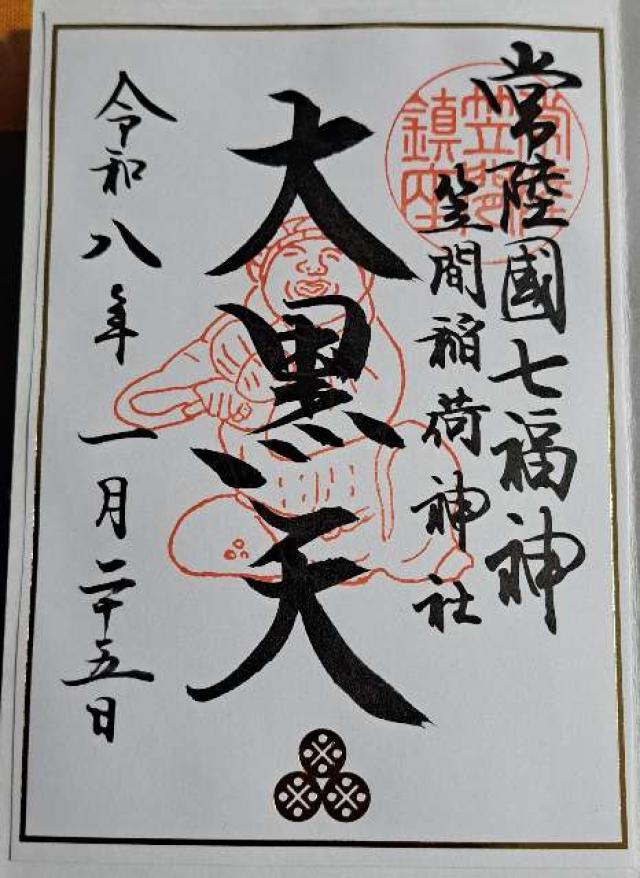 常陸國七福神
笠間稲荷神社
大黒天
令和八年一月二十五日